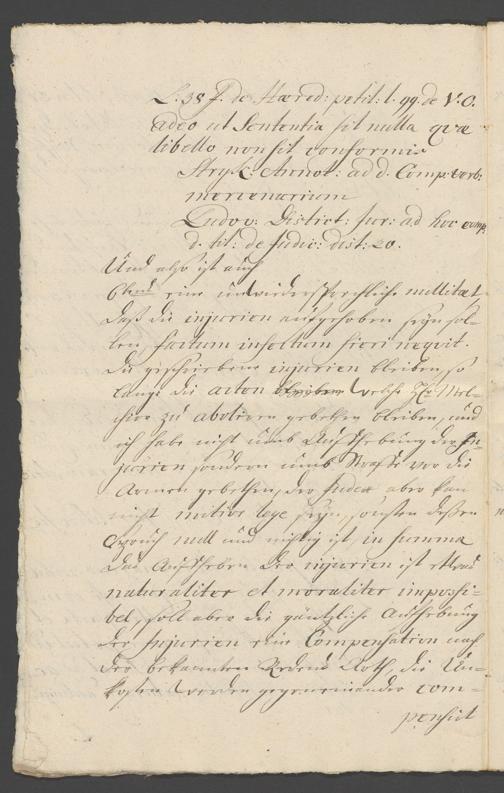 L. 38 ff. de Hæred: petit: l. 99. de V. O.
adeo ut Sententia sit nulla quæ
libello non sit conformis
Stryk: Annot: ad d. Comp: verb:
mercenarium
Ludov: Distict: Jur: ad hoc comp:
d. tit: de Judic: dist: 20.
Und also ist auch
6tens eine unwiedersprechliche nullitæt
daß die injurien aufgehoben seyn sol-
len factum infectum fieri nequit.
die geschriebene injurien bleiben, so
lange die acten bleiben welche Hr. Mel-
chior zu aboliren gebethen bleiben, und
ich habe nicht umb Auffhebung der In-
jurien sondern umb Straffe vor die
Armen gebethen, der Judex aber kan
nicht mitior lege seyn, sonsten deßen
Spruch null und nichtig ist, in summa
das Auffheben der injurien ist etwas
naturaliter et moraliter impossi-
bel, soll aber die gäntzliche Auffhebung
der Injurien eine Compensation nach
der bekannten Redens Arth, die Un-
kosten werden gegeneinander com-
pensirt